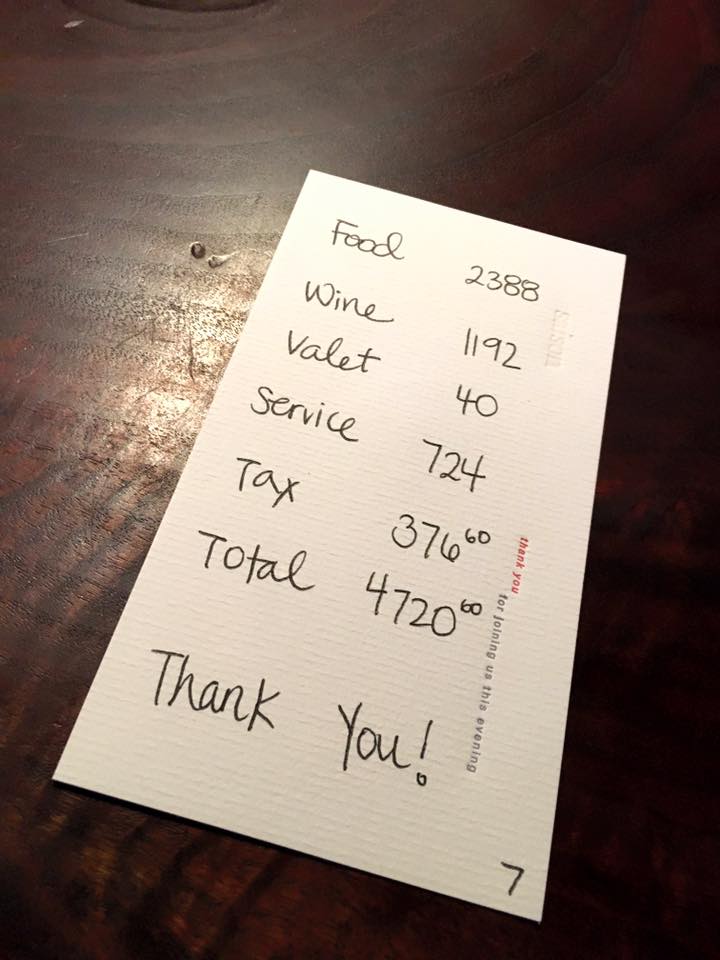 Food 2388
Wine 1192
Valet 40
Service 724
Tax 376 60
Total 4720 60
Thank You!
7
saison
thank you for joining us this evening